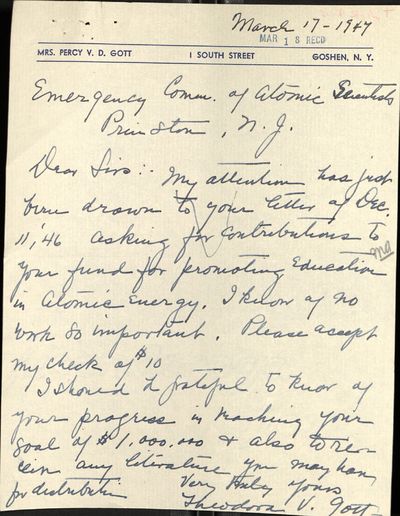 March 17-1947
MAR 18 RECD
MRS. PERCY V. D. GOTT 1 SOUTH STREET GOSHEN, N. Y.
Emergency Comm. of Atomic Scientists
Princeton, N. J.
Dear Sirs:- My attention has just
been drawn to your letter of Dec.
11, '46 asking for contributions to
your fund for promoting Education
in Atomic Energy. I know of no
work so important. Please accept
my check of $10
I should be grateful to know of
your progress in reaching your
goal of $1,000,000 & also to re-
ceive any literature you may have
for distribution Very truly yours
Theodora V. Gott